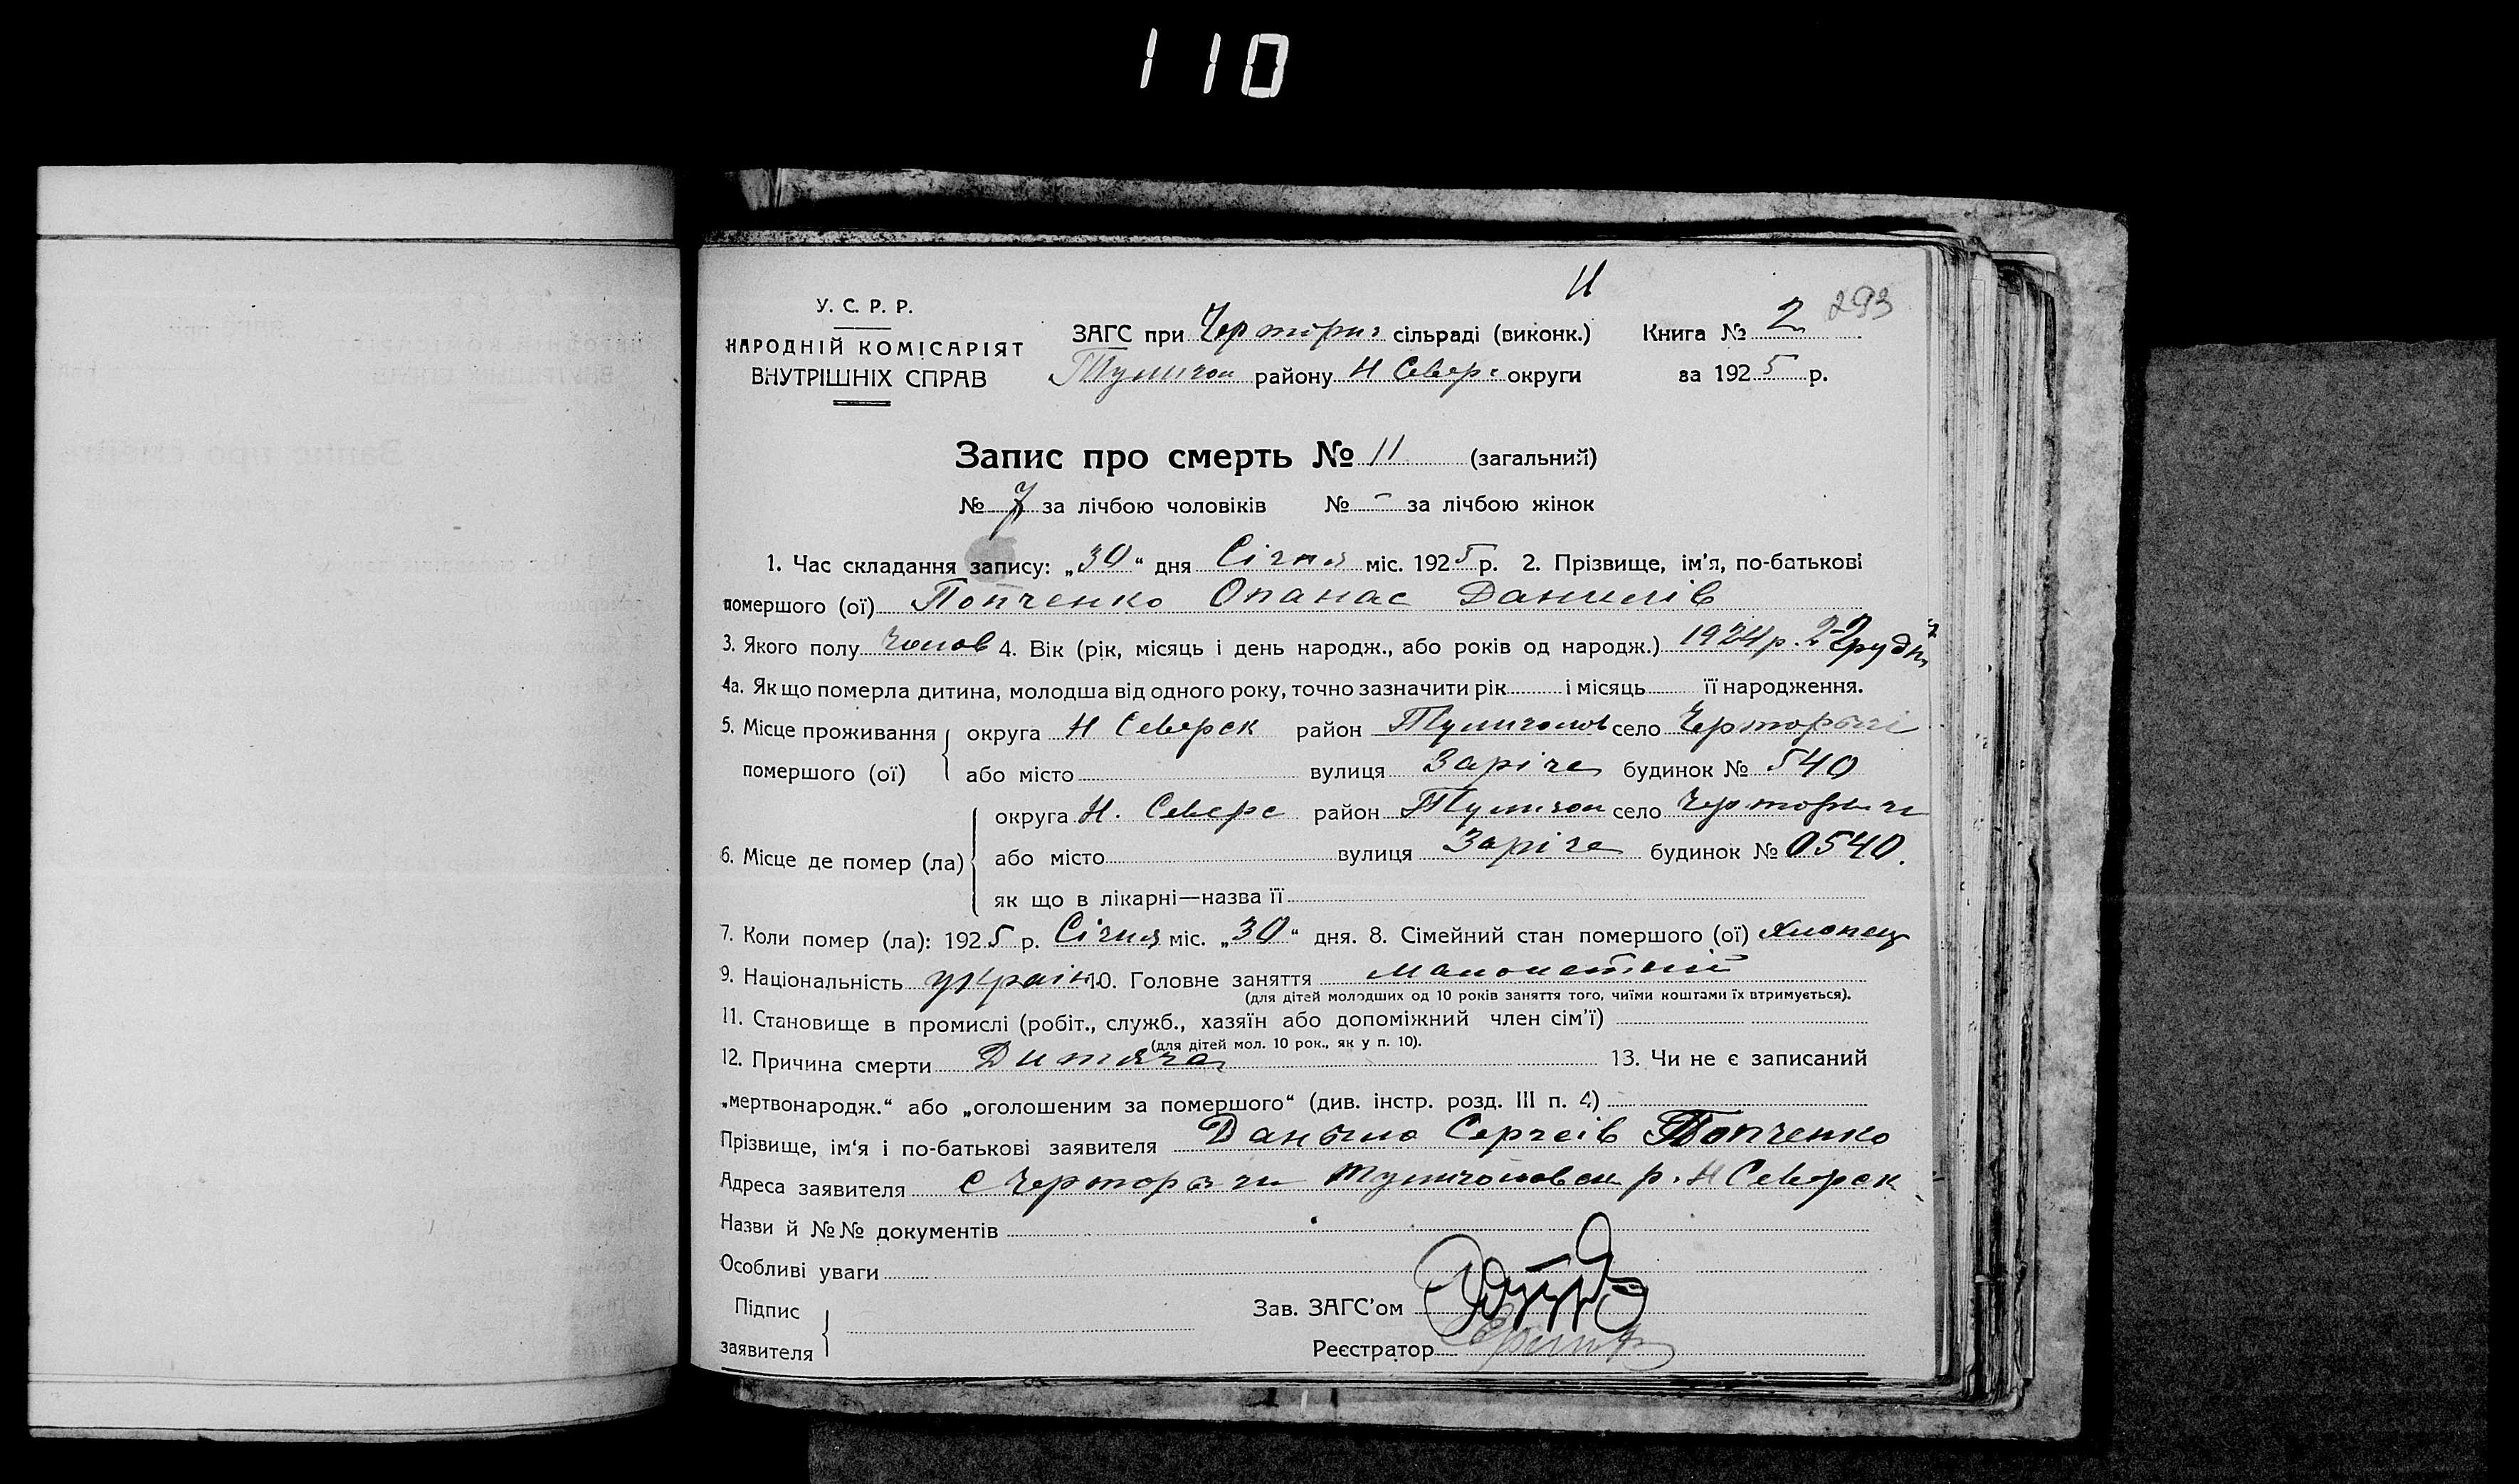 110
И
293
У. С. Р. Р.
НАРОДНІЙ КОМІСАРІЯТ
ВНУТРІШНІХ СПРАВ
ЗАГС при Черториг сільраді (виконк.)
Тулигол району Н Северс округи
Книга № 2
за 1925 р.
Запис про смерть № 11 (загальний)
№ 7 за лічбою чоловіків № - за лічбою жінок
1. Час складання запису: „30“ дня Січня міс. 1925 р. 2. Прізвище, ім'я, по-батькові
помершого (ої) Попченко Опанас Данилів
3. Якого полу Чолов 4. Вік (рік, місяць і день народж., або років од народж.) 1924 р. 2-го Грудн
4а. Як що померла дитина, молодша від одного року, точно зазначити рік і місяць її народження.
5. Місце проживання округа Н Северск район Тулиголов село Черторыгі
помершого (ої) або місто вулиця Заріче будинок № 540
округа Н. Северс район Тулигол село Черториги
6. Місце де помер (ла) або місто вулиця Заріче будинок № 0540.
як що в лікарні—назва її
7. Коли помер (ла): 1925 р. Січня міс. „30“ дня. 8. Сімейний стан помершого (ої) Хлопець
9. Національність україн 10. Головне заняття малолетній
(для дітей молодших од 10 років заняття того, чиїми коштами їх втримується).
11. Становище в промислі (робіт., служб., хазяїн або допоміжний член сім'ї)
(для дітей мол. 10 рок., як у п. 10).
12. Причина смерти Дитяча 13. Чи не є записаний
„мертвонародж.“ або „оголошеним за помершого“ (див. інстр. розд. III п. 4)
Прізвище, ім'я і по-батькові заявителя Даныло Сергеів Попченко
Адреса заявителя с Черторыги Тулиголовск р. Н Северск
Назви й №№ документів
Особливі уваги
Підпис
заявителя
Зав. ЗАГС'ом
Реєстратор